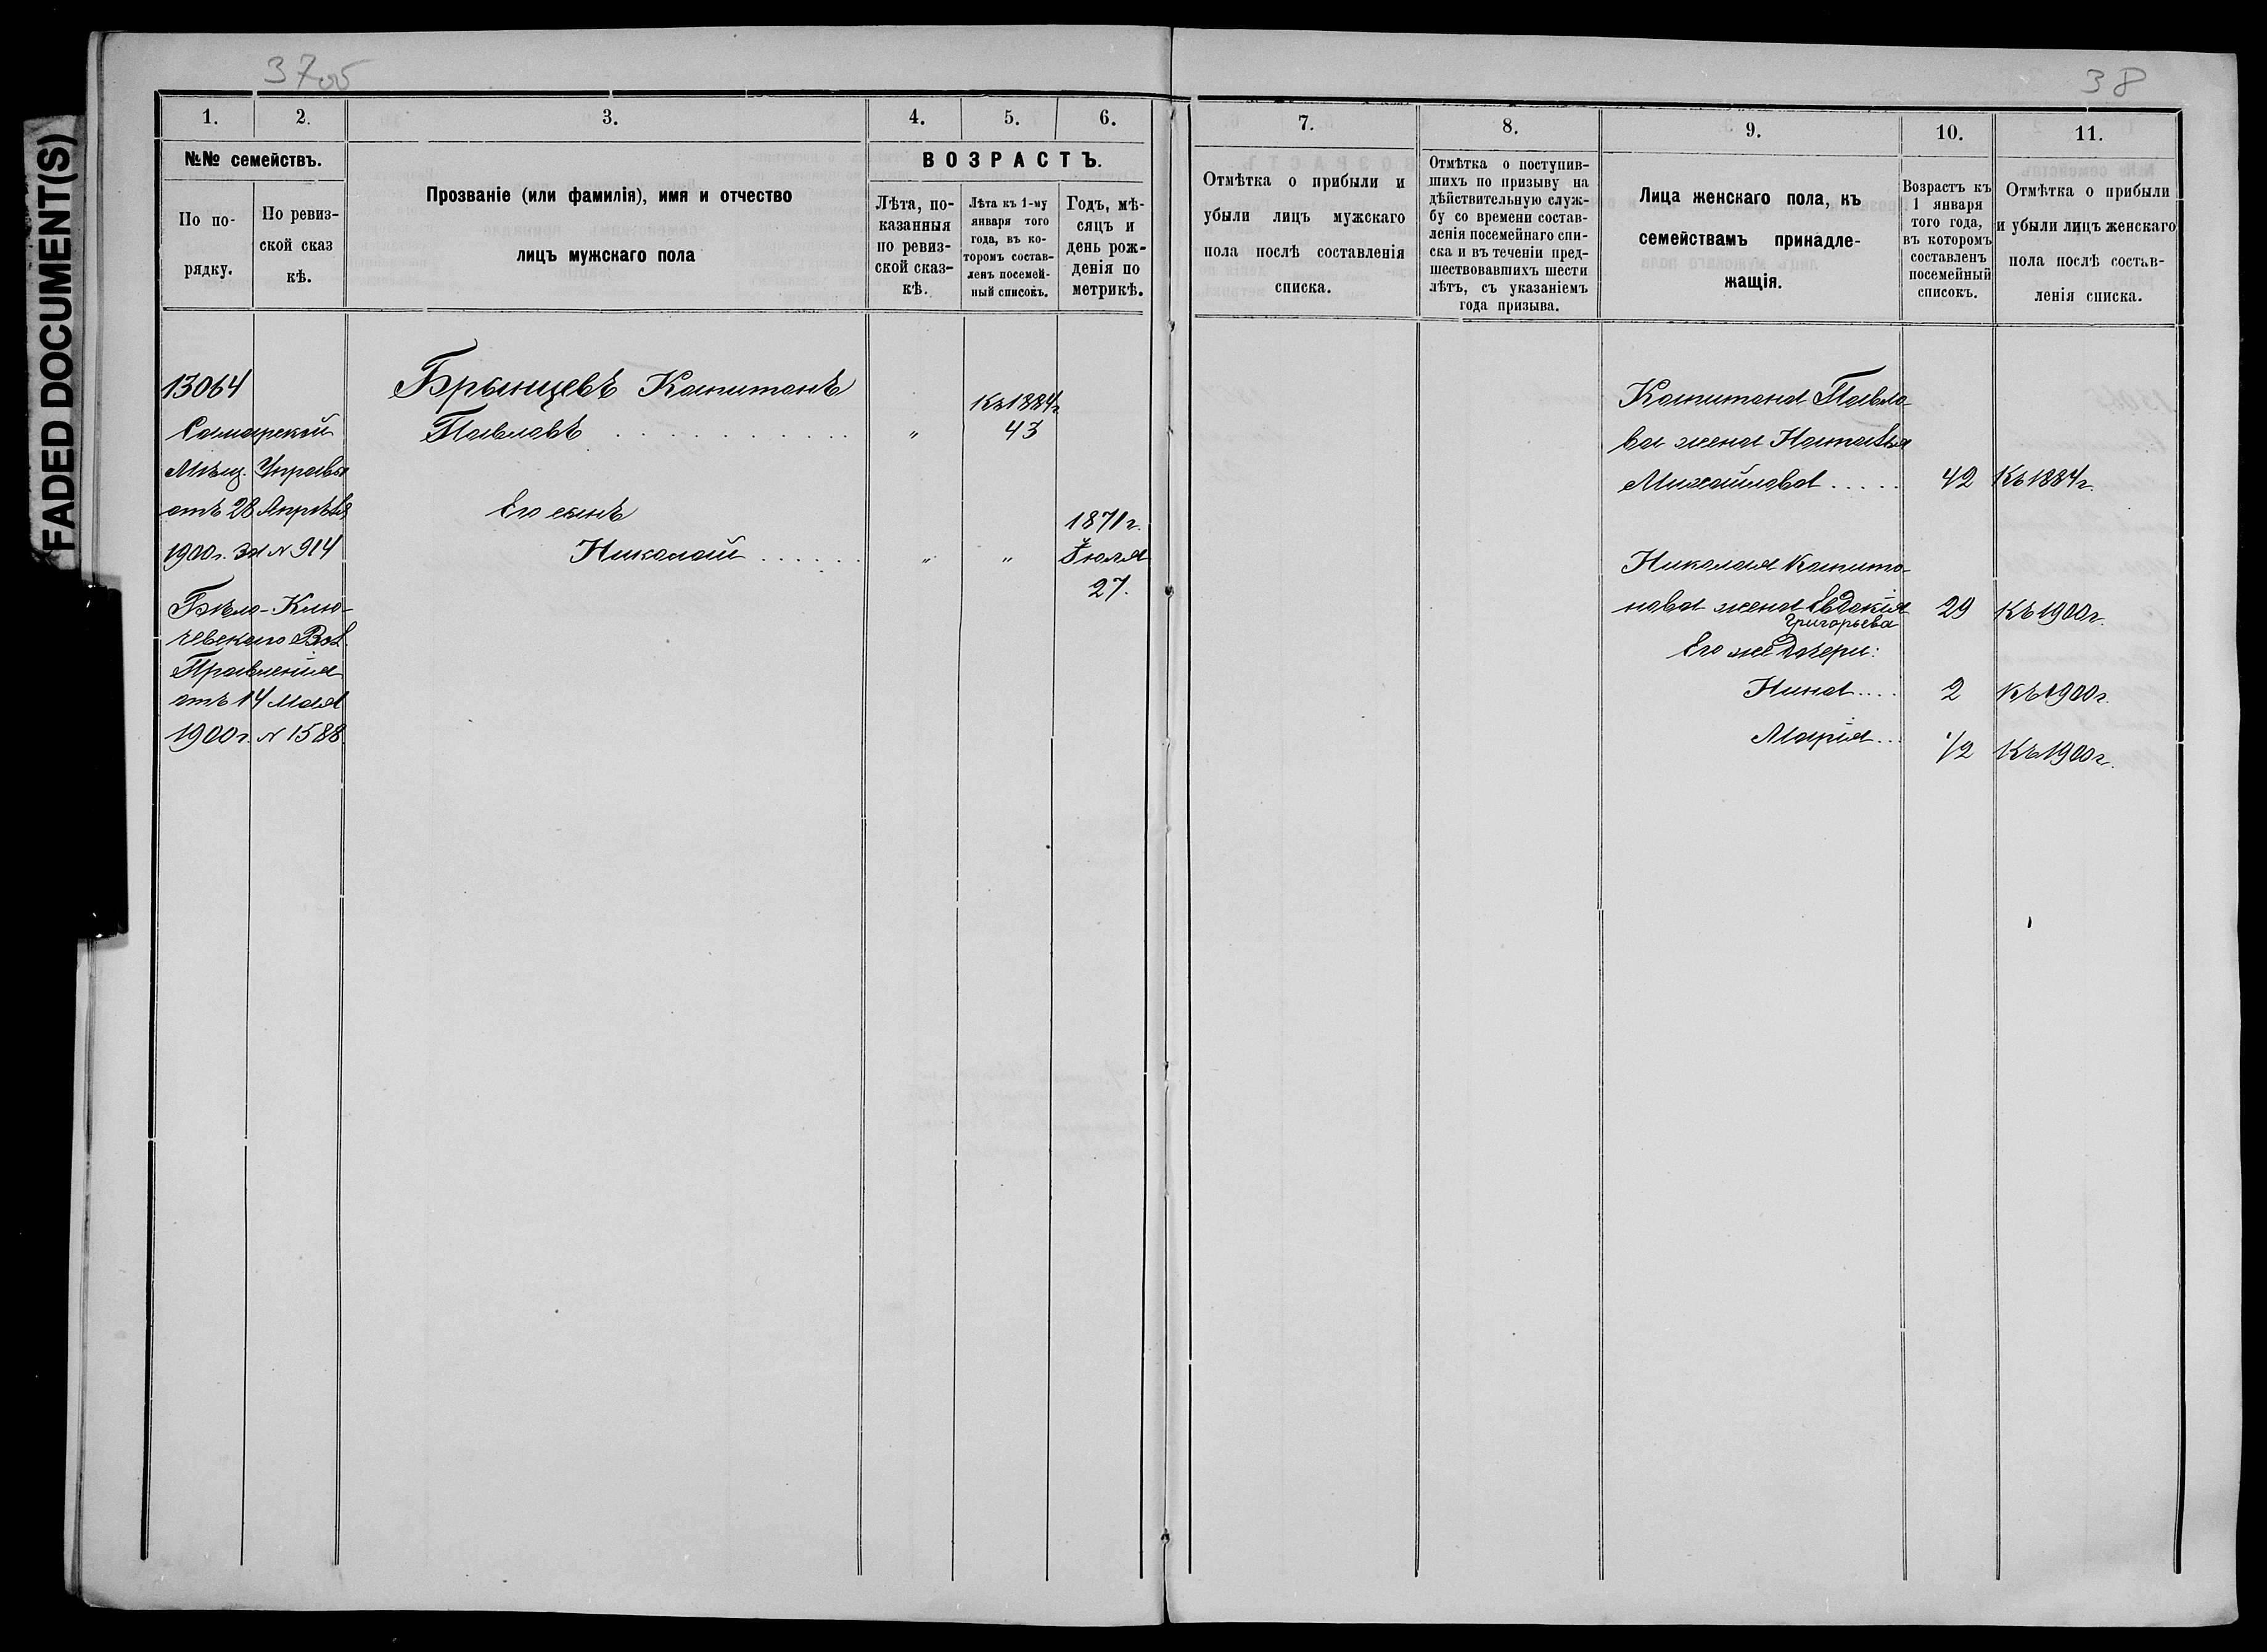 FADED DOCUMENT(S)
37об
1.
2.
3.
4.
5.
6.
№№ семействъ.
По по-
рядку.
По ревиз-
ской сказ
кѣ.
Прозваніе (или фамилія), имя и отчество
лицъ мужскаго пола
ВОЗРАСТЪ.
Лѣта, по-
казанныя
по ревиз-
ской сказ-
кѣ.
Лѣта къ 1-му
января того
года, въ ко-
торомъ состав-
ленъ посемей-
ный списокъ.
Годъ, мѣ-
сяцъ и
день рож-
денія по
метрикѣ.
13064
Самарской
Мѣщ. Управы
отъ 28 Апрѣля
1900г. за № 914
Бѣло-Клю-
чевскаго Вол.
Правленія
отъ 14 Мая
1900г. № 1588.
Брынцевъ Капитонъ
Павловъ . . . . . . . . . . . „
Къ 1884г
43
Его сынъ
Николай . . . . . . „ „
1871г.
Іюля
27.
38
7.
8.
9.
10.
11.
Отмѣтка о прибыли и
убыли лицъ мужскаго
пола послѣ составленія
списка.
Отмѣтка о поступив-
шихъ по призыву на
дѣйствительную служ-
бу со времени состав-
ленія посемейнаго спи-
ска и въ теченіи пред-
шествовавшихъ шести
лѣтъ, съ указаніемъ
года призыва.
Лица женскаго пола, къ
семействамъ принадле-
жащія.
Возрастъ къ
1 января
того года,
въ которомъ
составленъ
посемейный
списокъ.
Отмѣтка о прибыли
и убыли лицъ женскаго
пола послѣ состав-
ленія списка.
Капитона Павло-
ва жена Наталья
Михайлова . . . . . 42 Къ 1884г.
Николая Капито-
нова жена Евдокія 29 Къ 1900г.
Григорьева
Его же дочери:
Нина .... 2 Къ 1900г.
Марія ... 1/2 Къ 1900г.